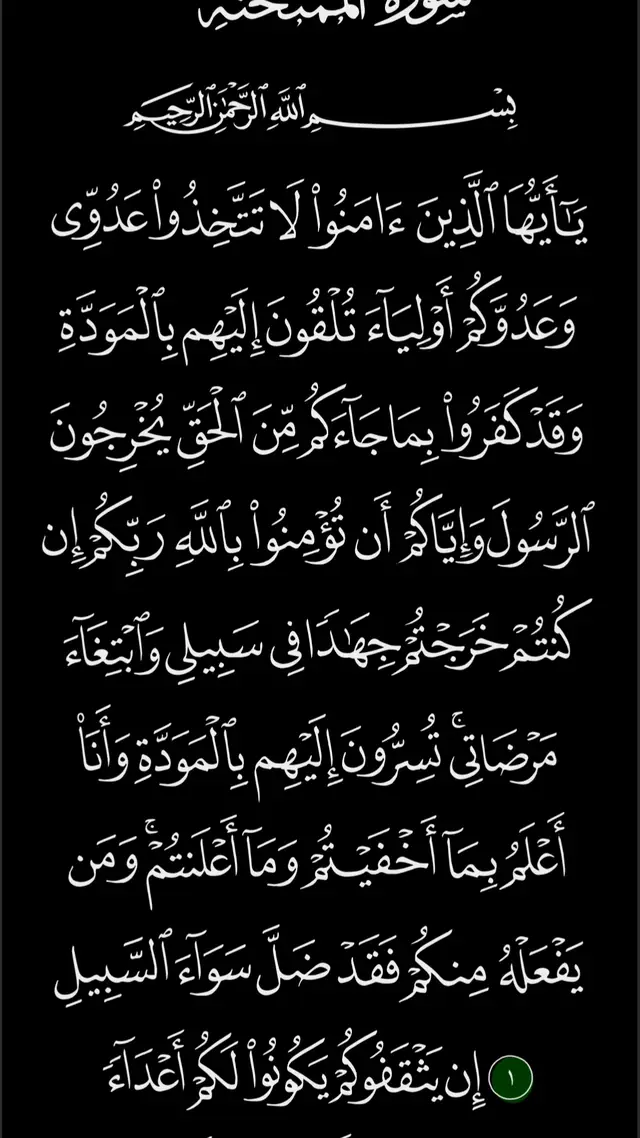 سورة الممتحنة
بِسْمِ ٱللَّهِ ٱلرَّحْمَٰنِ ٱلرَّحِيمِ
يَٰٓأَيُّهَا ٱلَّذِينَ ءَامَنُوا۟ لَا تَتَّخِذُوا۟ عَدُوِّى
وَعَدُوَّكُمْ أَوْلِيَآءَ تُلْقُونَ إِلَيْهِم بِٱلْمَوَدَّةِ
وَقَدْ كَفَرُوا۟ بِمَا جَآءَكُم مِّنَ ٱلْحَقِّ يُخْرِجُونَ
ٱلرَّسُولَ وَإِيَّاكُمْ أَن تُؤْمِنُوا۟ بِٱللَّهِ رَبِّكُمْ إِن
كُنتُمْ خَرَجْتُمْ جِهَٰدًا فِى سَبِيلِى وَٱبْتِغَآءَ
مَرْضَاتِى ۚ تُسِرُّونَ إِلَيْهِم بِٱلْمَوَدَّةِ وَأَنَا۠
أَعْلَمُ بِمَآ أَخْفَيْتُمْ وَمَآ أَعْلَنتُمْ ۚ وَمَن
يَفْعَلْهُ مِنكُمْ فَقَدْ ضَلَّ سَوَآءَ ٱلسَّبِيلِ
١ إِن يَثْقَفُوكُمْ يَكُونُوا۟ لَكُمْ أَعْدَآءً